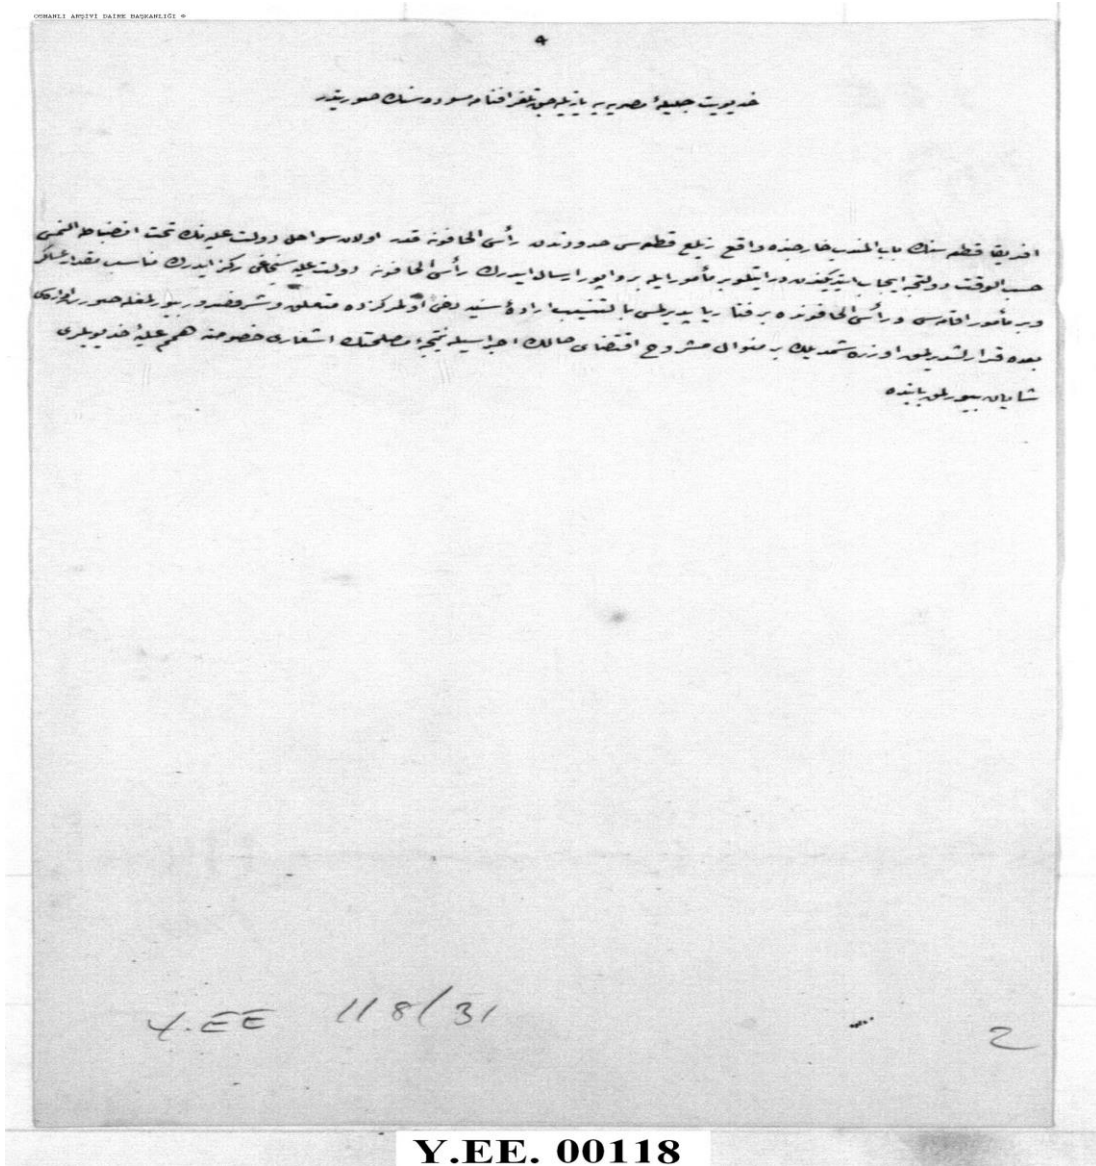 OSMANLI ARŞİVİ DAİRE BAŞKANLIĞI
٤
خديويت جليلۀ مصريه يه يازيله جق تلغرافنامه مسوده سنك صورتيدر
افريقا قطعه سنك باب المندب خارجنده واقع زيلع قطعه سى حدودندن رأس الحافونه قدر اولان سواحل دولت عليه نك تحت
حسب الوقت دولتجه ايجاب ايتديكندن درايتلو بر مأمور ايله بر واپور ارسال ايدرك رأس الحافونه دولت عليه سنجاغى ركز ايدرك مناسب مقدار عسكر
و بر مأمور اقامه سى و رأس الحافونده بر فنار ياپديرلمسى بالتنسيب ارادۀ سنيه دخى اولمركزده متعلق و شرفصدور بيورلمغله صورت
بعده قرارلشديرلمق اوزره شمديلك بر منوال مشروح اقتضاى حالك اجراسيله نتيجۀ مصلحتك اشعارى خصوصنه همم عليۀ خديويلرى
شايان بيورلمق بابنده
Y.EE 118/31
2
Y.EE. 00118